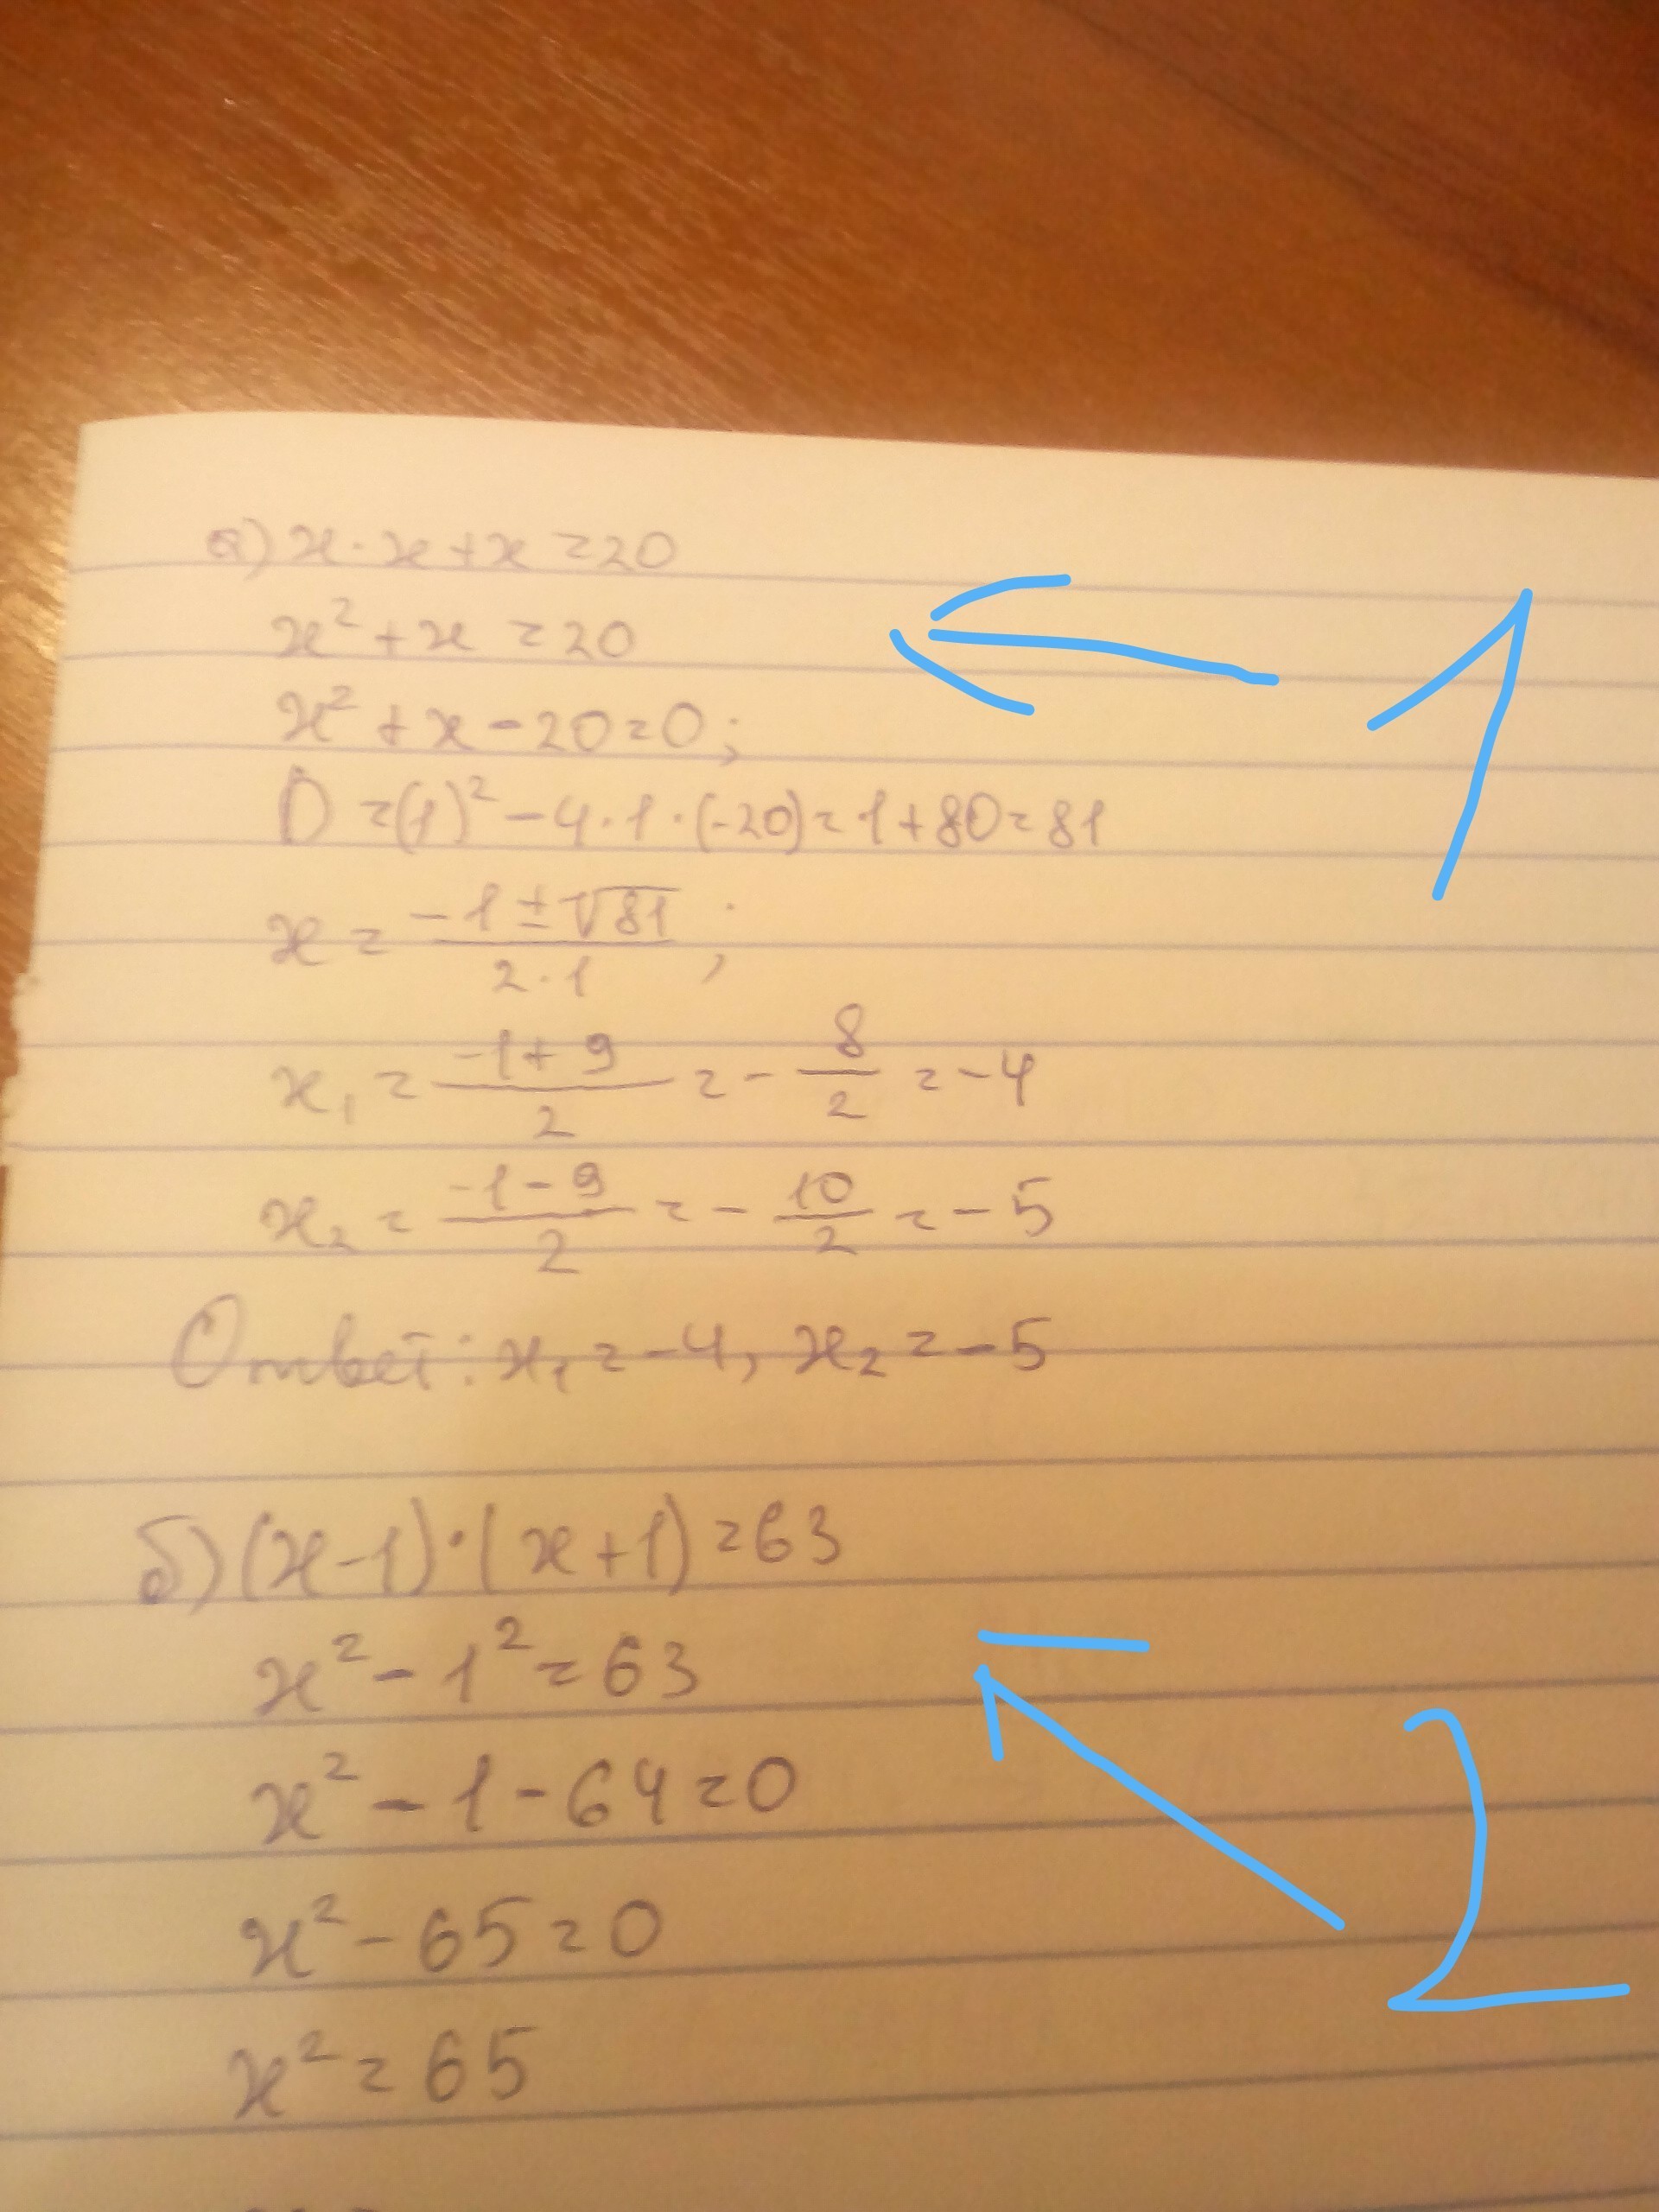 а) x·x+x=20
x²+x=20
x²+x-20=0;
D=(1)²-4·1·(-20)=1+80=81
x=(-1±√81)/(2·1);
x₁=(-1+9)/2=-8/2=-4
x₂=(-1-9)/2=-10/2=-5
Ответ: x₁=-4, x₂=-5
1
б) (x-1)·(x+1)=63
x²-1²=63
x²-1-64=0
x²-65=0
x²=65
2